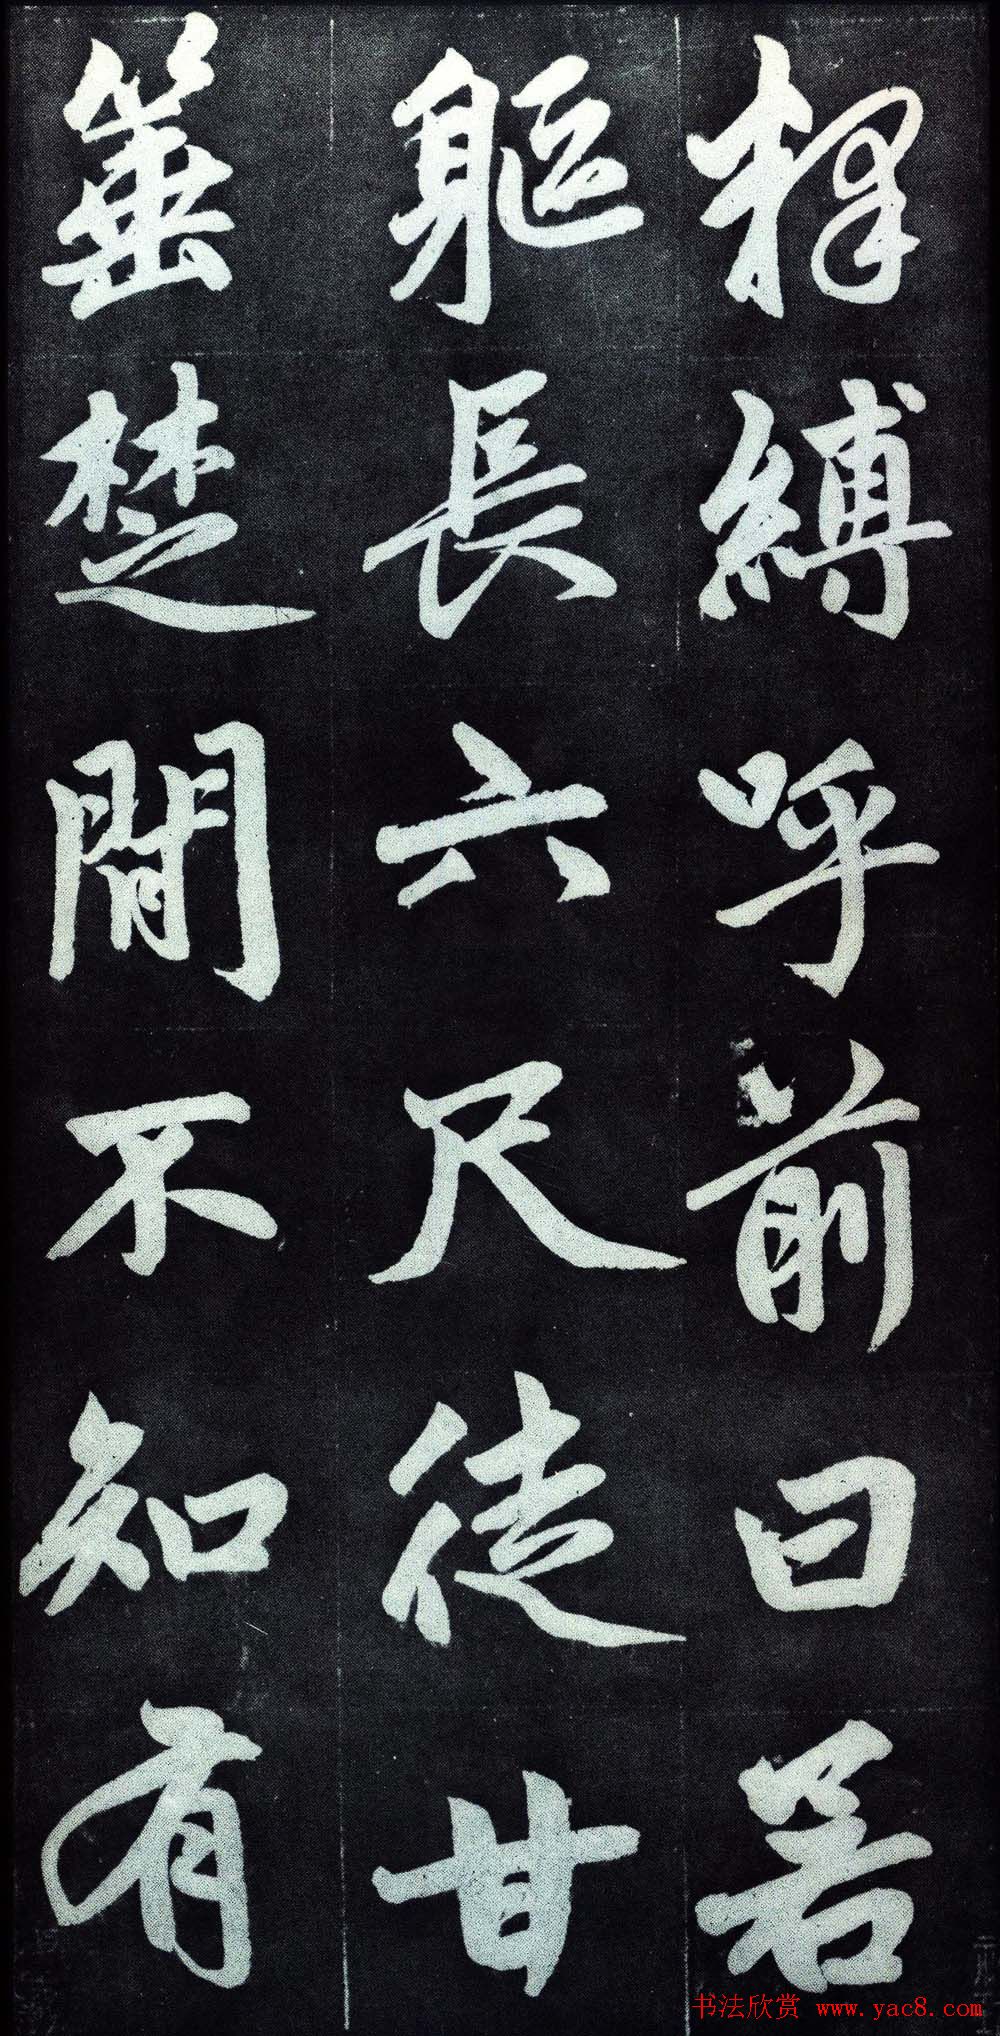 释縛呼前曰若
軀長六尺徒甘
箠楚間不知有
书法欣赏 www.yac8.com